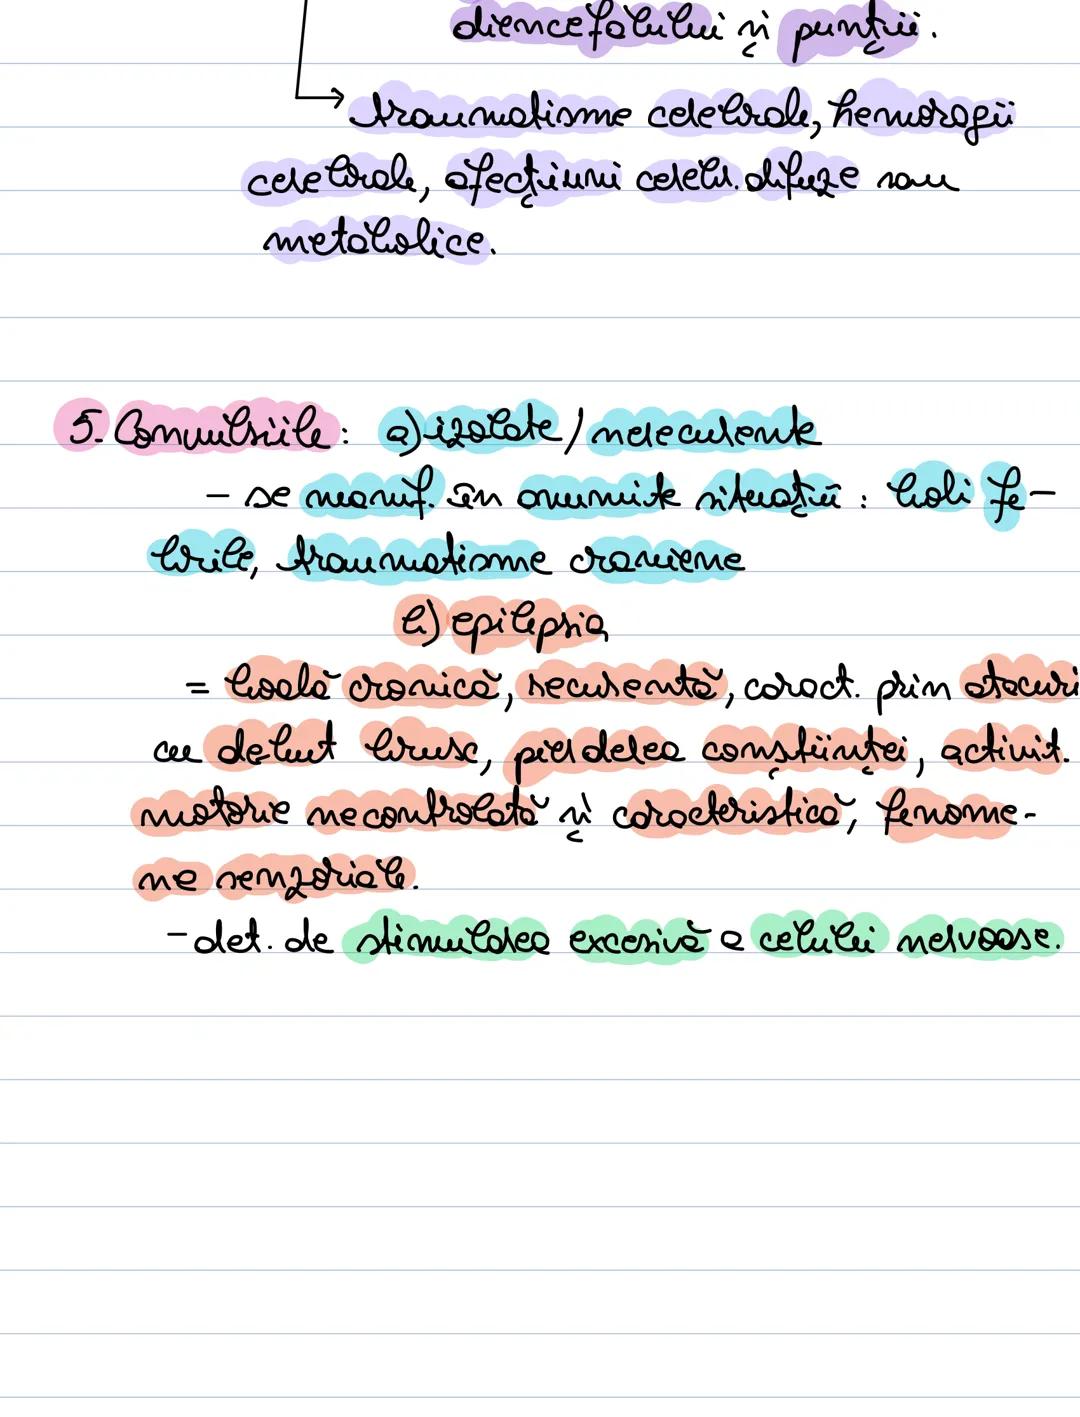 diencefalului și punții.
traumatisme celebrale, hemoragii
celebrale, afecțiuni celebr. difuze sau
metabolice.
5. Convulsiile: a) izolate / nerecurente
- se manif. în anumite situații: boli fe-
brile, traumatisme craniene
b) epilepsia
= boală cronică, recurentă, caract. prin atacuri
cu debut brusc, pierderea conștiinței, activit.
motorie necontrolată și caracteristică, fenome-
ne senzoriale.
- det. de stimularea excesivă a celulei nervoase.